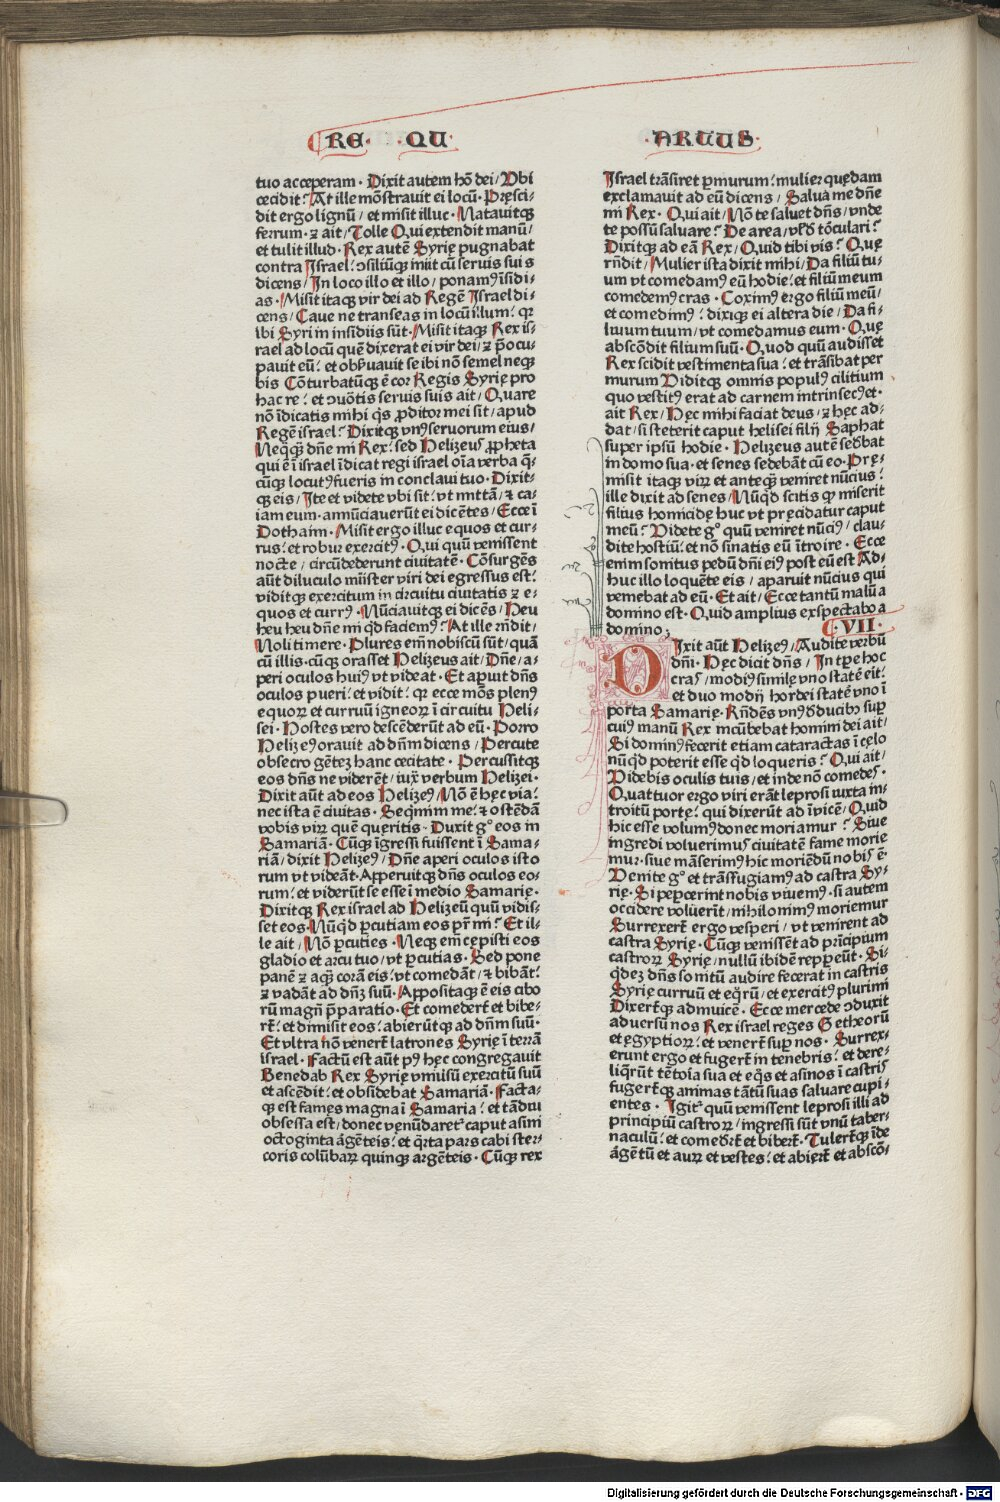 RE· ·QU·
·ARTUS·
tuo acceperam· Dixit autem hō dei/ Vbi
cecidit? At ille mōstrauit ei locū· Pręsci-
dit ergo lignū/ et misit illuc· Natauitqꝫ
ferrum· ⁊ ait/ Tolle Qui extendit manū/
et tulit illud· Rex autē Syrię pugnabat
contra Israel: ↄsiliūqꝫ iniit cū seruis suis
dicens/ In loco illo et illo/ ponamꝰ īsidi-
as· Misit itaqꝫ vir dei ad Regē Israel di-
cens/ Caue ne transeas in locū illum: qꝛ
ibi Syri in insidiis sūt· Misit itaqꝫ Rex is-
rael ad locū quē dixerat ei vir dei/ ⁊ p̄ocu-
pauit eū: et obẜuauit se ibi nō semel neqꝫ
bis Cōturbatūqꝫ ē coꝛ Regis Syrię pro
hac re: et ↄuōtis seruis suis ait/ Quare
nō īdicatis mihi qͥs ꝓditor mei sit/ apud
Regē israel? Dixitqꝫ vnꝰ seruorum eius/
Neqꝙꝫ dn̄e mi Rex: sed Helizeus ꝓpheta
qui ē ī israel īdicat regi israel oīa verba q̄-
cūqꝫ locutꝰ fueris in conclaui tuo· Dixit-
qꝫ eis/ Ite et videte vbi sit: vt mittā/ ⁊ ca-
iam eum· annūciauerūt ei dicētes/ Ecce ī
Dothaim· Misit ergo illuc equos et cur-
rus: et robur exercitꝰ· Qui quū venissent
nocte/ circūdederunt ciuitatē· Cōsurgēs
aūt diluculo mīister viri dei egressus est:
viditqꝫ exercitum in circuitu ciuitatis ⁊ e-
quos et currꝰ· Nūciauitqꝫ ei dicēs/ Heu
heu heu dn̄e mi qͥd faciemꝰ? At ille rn̄dit/
Noli timere· Plures em̄ nobiscū sūt/ quā
cū illis· cūqꝫ orasset Helizeus ait/ Dn̄e/ a-
peri oculos huiꝰ vt videat· Et aꝑuit dn̄s
oculos pueri: et vidit: qꝛ ecce mōs plenꝰ
equoꝝ et curruū igneoꝝ ī circuitu Heli-
sei· Hostes vero descēderūt ad eū· Porro
Helizeꝰ orauit ad dn̄m dicens/ Percute
obsecro gētez hanc cecitate· Percussitqꝫ
eos dn̄s ne viderēt/ iuxͭ verbum Helizei·
Dixit aūt ad eos Helizeꝰ/ Nō ē hęc via:
nec ista ē ciuitas· Seqͥmini me: ⁊ ostēdā
vobis viꝝ quē quęritis· Duxit gͦ eos in
Samariā· Cūqꝫ īgressi fuissent ī Sama-
riā/ dixit Helizeꝰ/ Dn̄e aperi oculos isto
rum vt videāt· Apperuitqꝫ dn̄s oculos eo-
rum: et viderūt se esse ī medio Samarię·
Dixitqꝫ Rex israel ad Helizeū quū vidis-
set eos/ Nūqͥd ꝑcutiam eos pr̄ mi? Et il-
le ait/ Nō ꝑcuties· Necqꝫ em̄ cępisti eos
gladio et arcu tuo/ vt ꝑcutias· Sed pone
panē ⁊ aqꝫ corā eis: vt comedāt/ ⁊ bibāt:
⁊ vadāt ad dn̄ꝫ suū· Appositaqꝫ ē eis cibo
rū magn̄ p̄paratio· Et comedert̄ et bibe-
rt̄: et dimisit eos: abierūtqꝫ ad dn̄m suū·
Et vltra nō venert̄ latrones Syrię ī terrā
israel· Factū est aūt pꝰ hęc congregauit
Benedab Rex Syrię vniuīsū exercitū suū
et ascēdit: et obsidebat Samariā· Facta-
qꝫ est fames magna ī Samaria: et tādiu
obsessa est/ donec venūdaret͛ caput asini
octoginta āgēteis: et qͣrta pars cabi ster-
coris colūbaꝝ quinqꝫ argēteis· Cūqꝫ rex
Israel trāsiret ꝑ murum: mulier quędam
exclamauit ad eū dicens/ Salua me dn̄e
mi Rex· Qui ait/ Nō te saluet dn̄s/ vnde
te possū saluare? De area/ vl'ꝺ tōculari?
Dixitqꝫ ad eā Rex/ Quid tibi vis? Quę
rn̄dit/ Mulier ista dixit mihi/ Da filiū tu-
um vt comedamꝰ eū hodie: et filiū meum
comedemꝰ cras· Coximꝰ ergo filiū meū/
et comedimꝰ: dixiqꝫ ei altera die/ Da fi-
lium tuum/ vt comedamus eum· Quę
abscōdit filium suū· Quod quū audisset
Rex scidit vestimenta sua: et trāsibat per
murum Viditqꝫ omnis populꝰ cilitium
quo vestitꝰ erat ad carnem intrinsecꝰ et·
ait Rex/ Hęc mihi faciat deus/ ⁊ hęc ad-
dat/ si steterit caput helisei filij Saphat
super ipsū hodie· Helizeus autē sedͤbat
in domo sua· et senes sedebāt cū eo· Pre-
misit itaqꝫ viꝝ et anteqͣꝫ veniret nūcius:
ille dixit ad senes/ Nūqͥd scitis ꝙ miserit
filius homicidę huc vt pręcidatur caput
meū? Videte gͦ quū veniret nūciꝰ/ clau-
dite hostiū: et nō sinatis eū ītroire· Ecce
enim sonitus pedū dn̄i eiꝰ post eū est Ad-
huc illo loquēte eis/ aparuit nūcius qui
veniebat ad eū· Et ait/ Ecce tantū malū a
domino est· Quid amplius exspectabo a
domino;
·VII·
DIxit aūt Helizeꝰ/ Audite verbū
dn̄i· Hęc dicit dn̄s/ In tꝑe hoc
cras/ modiꝰ similę vno statē eit:
et duo modij hordei statē vno ī
porta Samarię· Rn̄dēs vnꝰ ꝺ ducibꝰ suꝑ
cuiꝰ manū Rex incūbebat homini dei ait/
Si dominꝰ fecerit etiam cataractas ī cęlo
nūqͥd poterit esse qͥd loqueris? Qui ait/
Videbis oculis tuis/ et inde nō comedeˢ·
Quattuor ergo viri erāt leprosi iuxta in-
troitū portę: qui dixerūt ad īvicē/ Quid
hic esse volumꝰ donec moriamur? Siue
ingredi voluerimus ciuitatē fame morie
mur· siue māserimꝰ hic moriēdū nobis ē·
Venite gͦ et trāsfugiamꝰ ad castra Sy-
rię· Si peꝑcerint nobis viuemꝰ· si autem
occidere voluerīt/ nihilominꝰ moriemur
Surrexert̄ ergo vesperi/ vt venirent ad
castra Syrię· Cūqꝫ venissēt ad prīcipium
castroꝝ Syrię/ nullū ibidē repꝑeūt· Si-
qͥdez dn̄s sonitū audire fecerat in castris
Syrię curruū et eqͦrū/ et exercitꝰ plurimi
Dixert̄qꝫ ad inuicē· Ecce mercede ↄduxit
aduersū nos Rex israel reges Getheorū
et ęgyptioꝝ: et venert̄ suꝑ nos· Surrex-
erunt ergo et fugert̄ in tenebris: et dere-
liqͥrūt tētoia sua et eqͦs et asinos ī castriˢ
fugert̄qꝫ animas tātū suas saluare cupi-
entes· Igit͛ quū venissent leprosi illi ad
principiū castroꝝ/ ingressi sūt vnū taber-
naculū: et comedʳt̄ et bibert̄· Tulert̄qꝫ īde
āgētū et auꝝ et vestes: et abiert̄ et abscō-
Digitalisierung gefördert durch die Deutsche Forschungsgemeinschaft - DFG